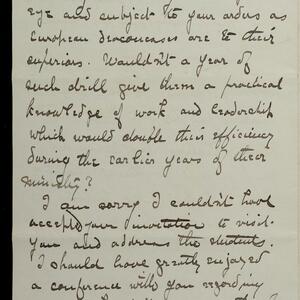 eye and subject to your orders as
European deaconesses are to their
superiors. Wouldn't a year of
such drill give them a practical
knowledge of work and leadership
which would double their efficiency
during the earlier years of their
ministry?
I am sorry I couldn't have
accepted your invitation to visit
you and address the students.
I should have greatly enjoyed
a conference with you regarding